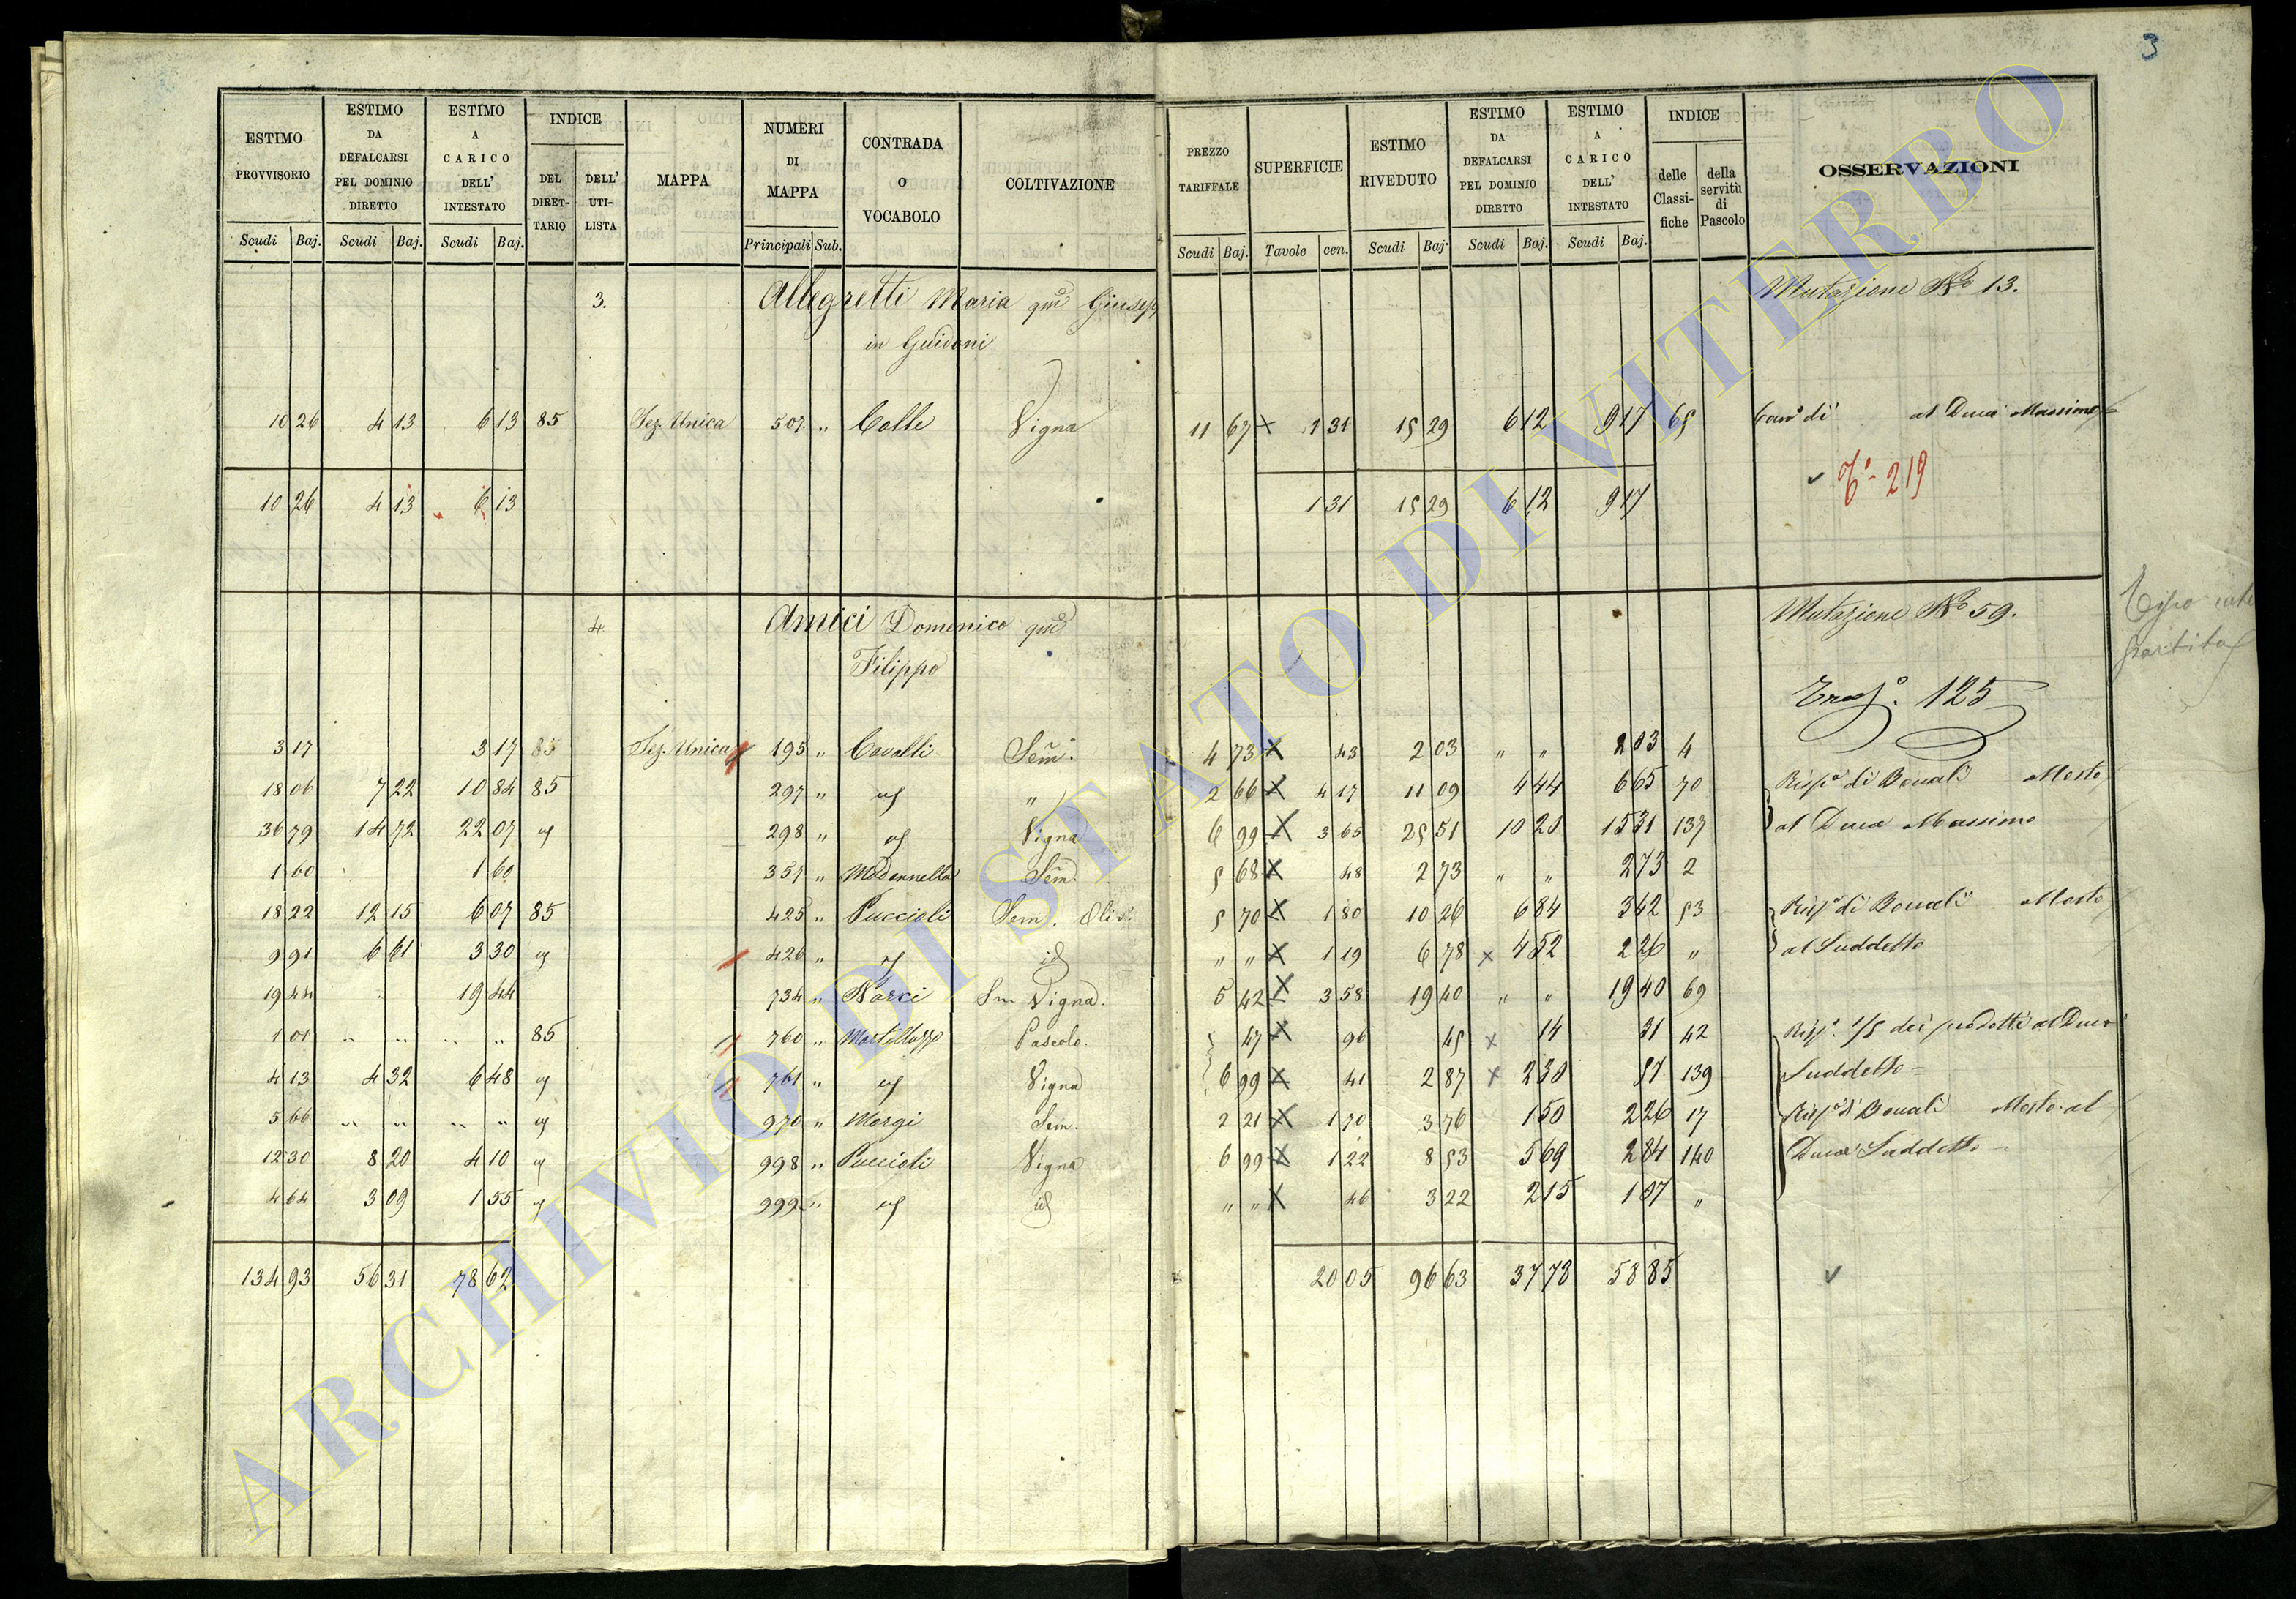 3
ESTIMO PROVVISORIO | ESTIMO DA DEFALCARSI PEL DOMINIO DIRETTO | ESTIMO A CARICO DELL' INTESTATO | INDICE | MAPPA | NUMERI DI MAPPA | CONTRADA O VOCABOLO | COLTIVAZIONE | PREZZO TARIFFALE | SUPERFICIE | ESTIMO RIVEDUTO | ESTIMO DA DEFALCARSI PEL DOMINIO DIRETTO | ESTIMO A CARICO DELL' INTESTATO | INDICE | OSSERVAZIONI
DEL DIRET-TARIO | DELL' UTI-LISTA | delle Classi-fiche | della servitù di Pascolo
Scudi | Baj. | Scudi | Baj. | Scudi | Baj. | Principali | Sub. | Scudi | Baj. | Tavole | cen. | Scudi | Baj. | Scudi | Baj. | Scudi | Baj.
3. Allegretti Maria qm Giusep Mutazione No 13.
in Guidoni
10 26 | 4 13 | 6 13 | 85 | Sez. Unica | 507 " | Colle | Vigna | 11 67 X | 1 31 | 15 29 | 6 12 | 9 17 | 65 | di al Duca Massimo
10 26 | 4 13 | 6 13 | 1 31 | 15 29 | 6 12 | 9 17 | 219
4. Amici Domenico qm Mutazione No 59.
Filippo
partita
125
3 17 | 3 17 | 85 | Sez. Unica | 195 " | Cavalli | Sem. | 4 73 X | 43 | 2 03 | " " | 2 03 | 4
18 06 | 7 22 | 10 84 | 85 | 297 " | id | " | 2 66 X | 4 17 | 11 09 | 4 44 | 6 65 | 70 | Rispa di Boccali Mosto
36 79 | 14 72 | 22 07 | id | 298 " | id | Vigna | 6 99 X | 3 65 | 25 51 | 10 20 | 15 31 | 137 | al Duca Massimo
1 60 | 1 60 | 357 " | Madonnella | Sem. | 5 68 X | 48 | 2 73 | " " | 2 73 | 2
18 22 | 12 15 | 6 07 | 85 | 425 " | Puccioli | Sem. Oliv. | 5 70 X | 1 80 | 10 26 | 6 84 | 3 42 | 53 | Rispa di Boccali Mosto
9 91 | 6 61 | 3 30 | id | 426 " | id | id | " " X | 1 19 | 6 78 | X 4 52 | 2 26 | " | al Suddetto
19 44 | 19 44 | 734 " | Narci | Sem Vigna. | 5 42 X | 3 58 | 19 40 | " " | 19 40 | 69
1 01 | " " | " " | 85 | 760 " | Martellazzo | Pascolo. | 47 X | 96 | 45 | X 14 | 31 | 42 | Rispa 1/5 dei prodotti al Duca
4 13 | 4 32 | 6 48 | id | 761 " | id | Vigna | 6 99 X | 41 | 2 87 | X 2 30 | 57 | 139 | Suddetto
5 66 | " " | " " | id | 970 " | Morgi | Sem. | 2 21 X | 1 70 | 3 76 | 1 50 | 2 26 | 17 | Rispa di Boccali Mosto al
12 30 | 8 20 | 4 10 | id | 998 " | Puccioli | Vigna | 6 99 X | 1 22 | 8 53 | 5 69 | 2 84 | 140 | Duca Suddetto
4 64 | 3 09 | 1 55 | id | 999 " | id | id | " " X | 46 | 3 22 | 2 15 | 1 07 | "
134 93 | 56 31 | 78 62 | 20 05 | 96 63 | 37 78 | 58 85
ARCHIVIO DI STATO DI VITERBO